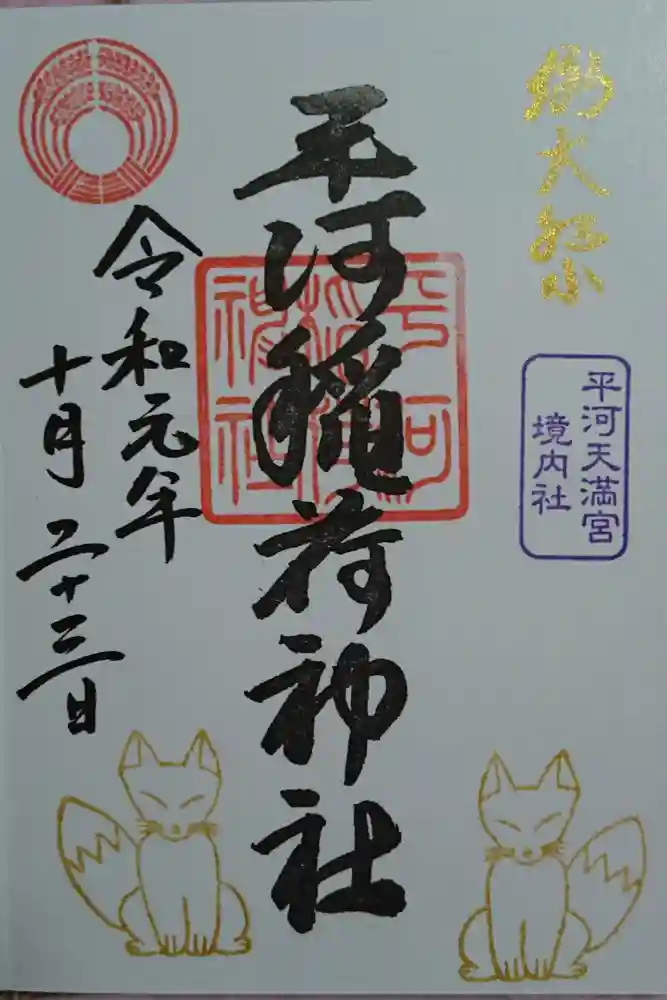 平河天満宮
境内社
平河稲荷神社
平河
稲荷
神社
令和元年
十月二十三日